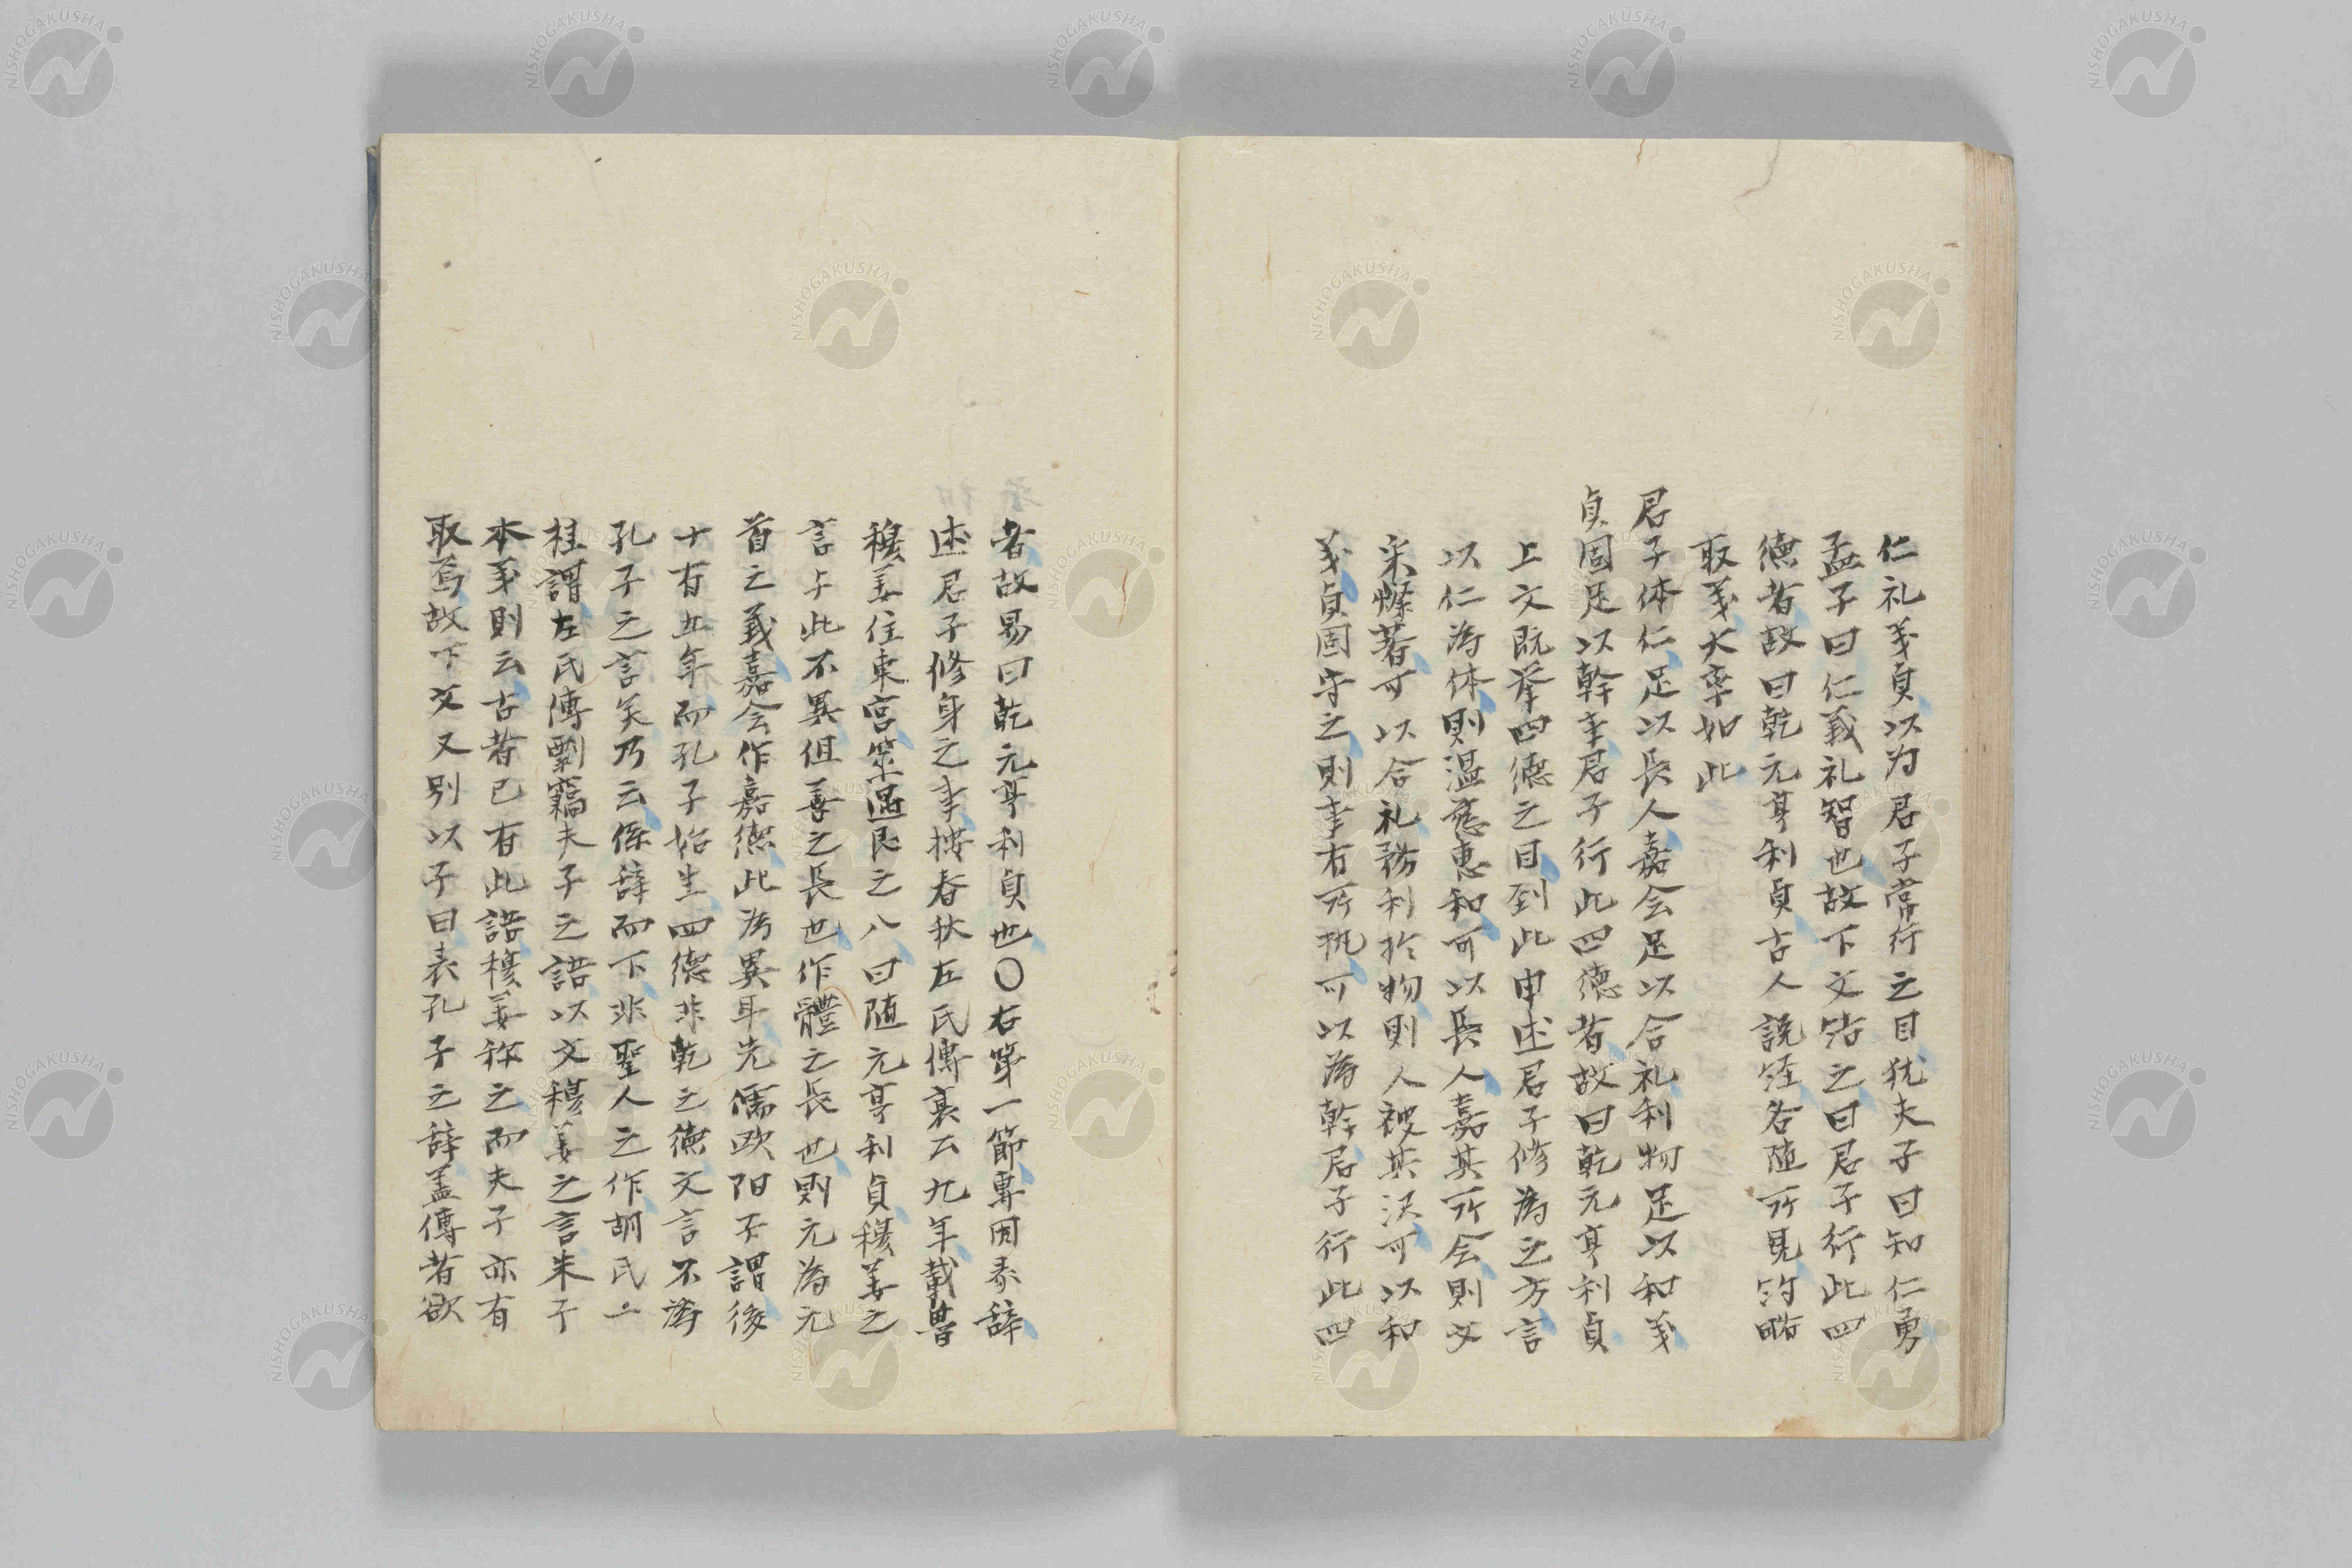 仁礼义貞以为君子常行之目犹夫子曰知仁勇
孟子曰仁義礼智也故下文結之曰君子行此四
德者故曰乾元亨利貞古人説経各随所見約略
取义大率如此
君子体仁足以長人嘉会足以合礼利物足以和义
貞固足以幹事君子行此四德者故曰乾元亨利貞
上文既挙四德之目到此申述君子修為之方言
以仁為体則温慈惠和可以長人嘉其所会則文
采燦著可以合礼務利於物則人被其沢可以和
义貞固守之則事有所執可以為幹君子行此四
者故易曰乾元亨利貞也〇右第一節専因彖辞
述君子修身之事按春秋左氏傳襄公九年載魯
穆姜徃東宮筮遇艮之八曰随元亨利貞穆姜之
言与此不異但善之長也作體之長也則元為元
首之義嘉会作嘉德此為異耳先儒欧阳子謂後
十有五年而孔子始生四德非乾之德文言不為
孔子之言矣乃云係辞而下非聖人之作胡氏一
桂謂左氏傳剽竊夫子之語以文穆姜之言朱子
本义則云古者已有此語穆姜称之而夫子亦有
取焉故下文又别以子曰表孔子之辞盖傳者欲
NISHOGAKUSHA